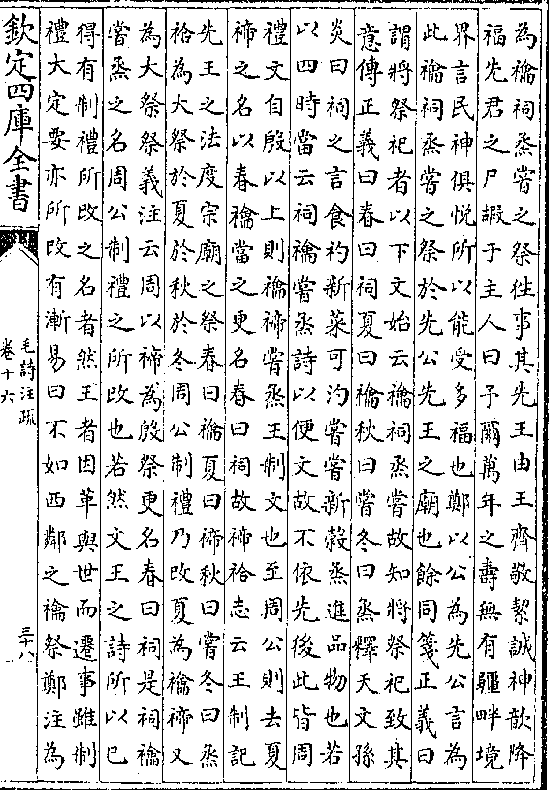 為禴祠烝嘗之祭往事其先王由王齊敬絜誠神歆降
福先君之尸嘏于主人曰予爾萬年之壽無有疆畔境
界言民神俱悅所以能受多福也鄭以公為先公言為
此禴祠烝嘗之祭於先公先王之廟也餘同箋正義曰
謂將祭祀者以下文始云禴祠烝嘗故知將祭祀致其
意傳正義曰春曰祠夏曰禴秋曰嘗冬曰烝釋天文孫
炎曰祠之言食礿新菜可汋嘗嘗新穀烝進品物也若
以四時當云祠禴嘗烝詩以便文故不依先後此皆周
禮文自殷以上則禴禘嘗烝王制文也至周公則去夏
禘之名以春禴當之更名春曰祠故禘祫志云王制記
先王之法度宗廟之祭春曰禴夏曰禘秋曰嘗冬曰烝
祫為大祭於夏於秋於冬周公制禮乃改夏為禴禘又
為大祭祭義注云周以禘為殷祭更名春曰祠是祠禴
嘗烝之名周公制禮之所改也若然文王之詩所以已
得有制禮所改之名者然王者因革與世而遷事雖制
禮大定要亦所改有漸易曰不如西鄰之禴祭鄭注為
欽定四庫全書
毛詩注疏
卷十六
三十八